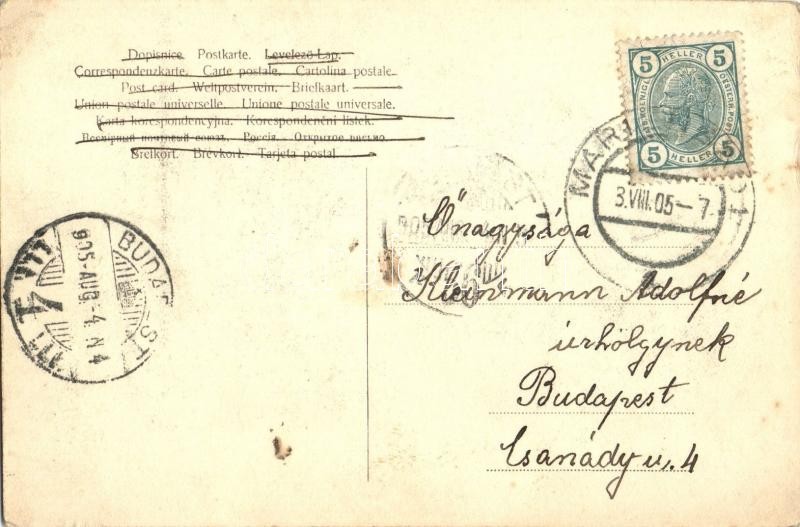 Dopisnice Postkarte. Levelező-Lap.
Correspondenzkarte. Carte postale. Cartolina postale.
Post card. Weltpostverein. Briefkaart.
Union postale universelle. Unione postale universale.
Karta korespondencyjna. Korespondenční lístek.
Всемірный почтовый союзъ. Россія. Открытое письмо.
Brefkort. Brevkort. Tarjeta postal.
5 HELLER 5
5 HELLER 5
MARI
3.VIII.05-7
BUDAPEST
905-AUG-4.N4
Őnagysága
Kleinmann Adolfné
úrhölgynek
Budapest
Csanády u. 4